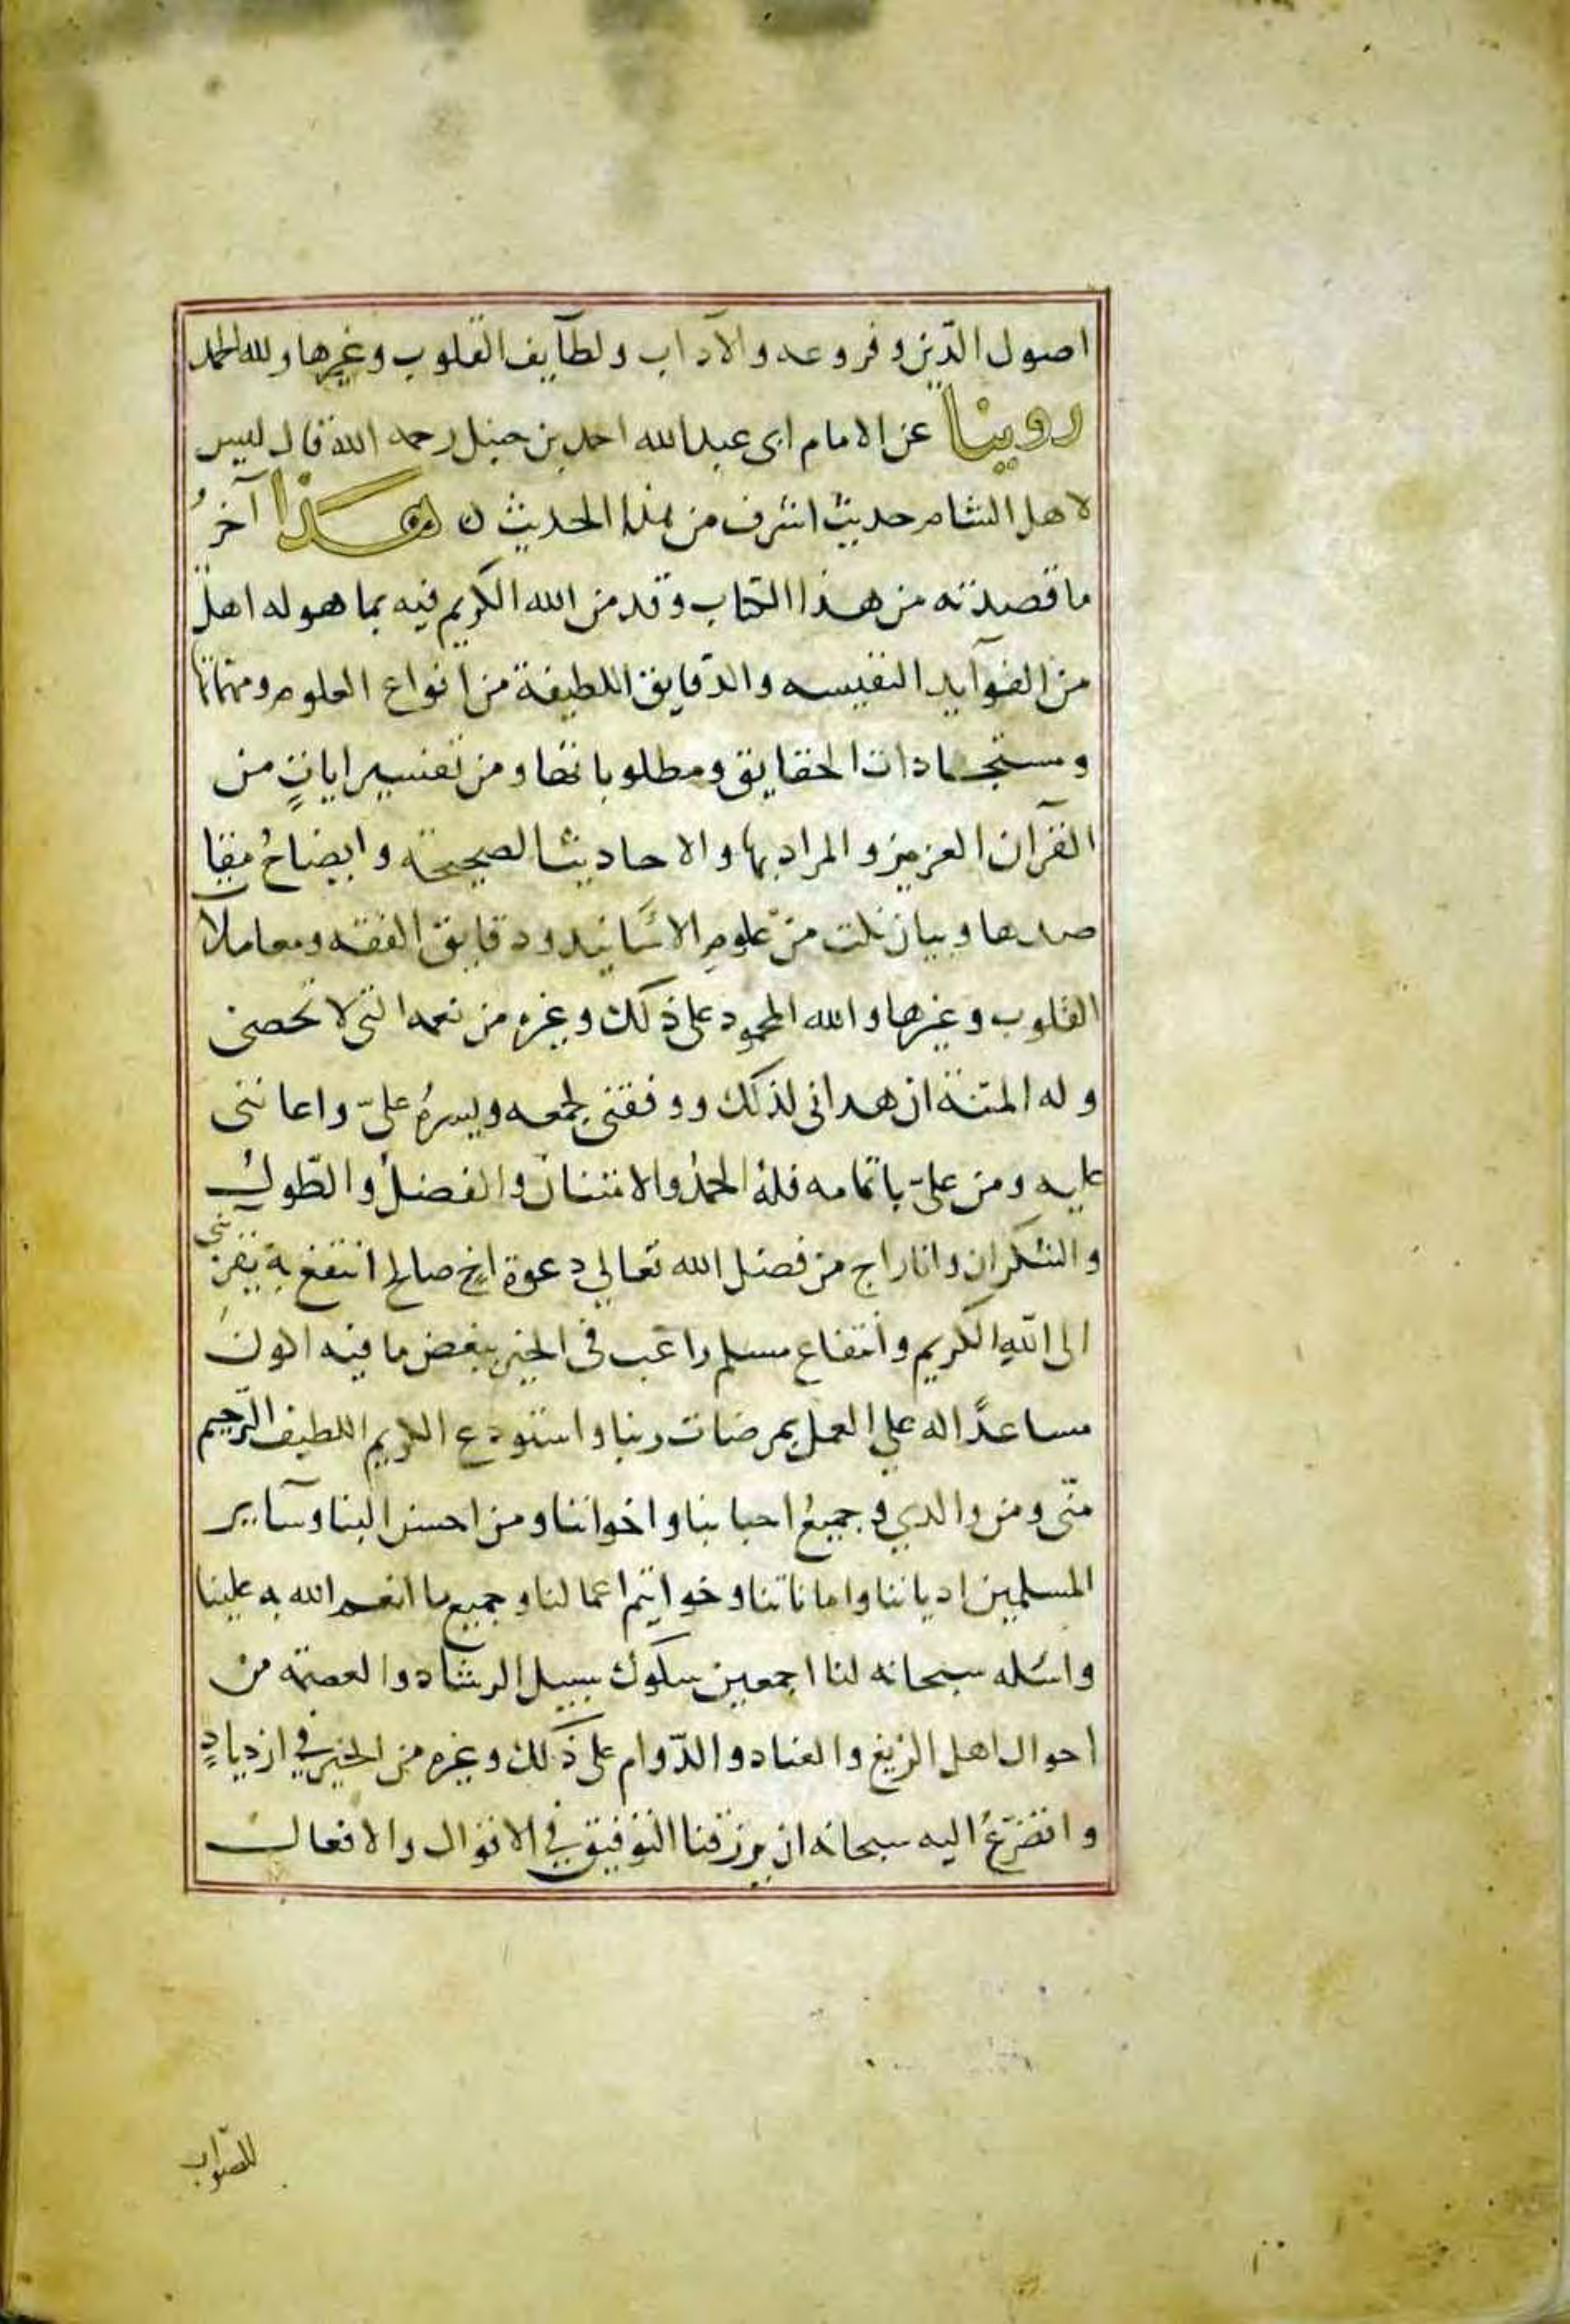 اصول الدّين وفروعه والآداب ولطآيف القلوب وغيرها ولله الحمد
روينا عن الامام ابى عبدالله احمد بن حنبل رحمه الله قال ليس
لاهل الشام حديث اشرف من هذا الحديث ن هذا آخرُ
ما قصدته من هذا الكتاب وقد من الله الكريم فيه بما هو له اهل
من الفوآيد النفيسه والدّقايق اللطيفة من انواع العلوم ومهماتها
ومستجادات الحقايق ومطلوباتها ومن تفسير اياتٍ من
القرآن العزيز والمراد بها والاحاديث الصحيحة وايضاحُ مقا
صدها وبيان نكت من علومِ الاسانيد ودقايق الفقه ومعاملا
القلوب وغيرها والله المحمود على ذلك وغيره من نعمه التى لا تحصى
وله المنّة ان هدانى لذلك ووفقنى لجمعه ويسرهُ علىّ واعاننى
عليه ومن علىّ باتمامه فلهُ الحمدُ والامتنان والفضلُ والطّولُ
والشكران وانا راج من فضل الله تعالي دعوة اخٍ صالحٍ انتفع بهِ تقربنى
الى اللهِ الكريم وانتفاع مسلم راغب فى الخير ببعض ما فيه اكون
مساعدًا له علي العمل بمرضات ربنا واستودع الكريم اللطيف الرّحيم
منّى ومن والدي وجميعُ احبابنا واخواننا ومن احسن الينا وسآير
المسلمين ادياننا واماناتنا وخواتيم اعمالنا وجميع ما انعم الله به علينا
واسُله سبحانه لنا اجمعين سلوك سبيل الرشاد والعصمة من
احوال اهل الزيغ والعناد والدّوام على ذلك وغيره من الخير في ازديادٍ
واتضرّعُ اليه سبحانه ان يرزقنا التوفيق في الاقوال والافعال
للصّواب